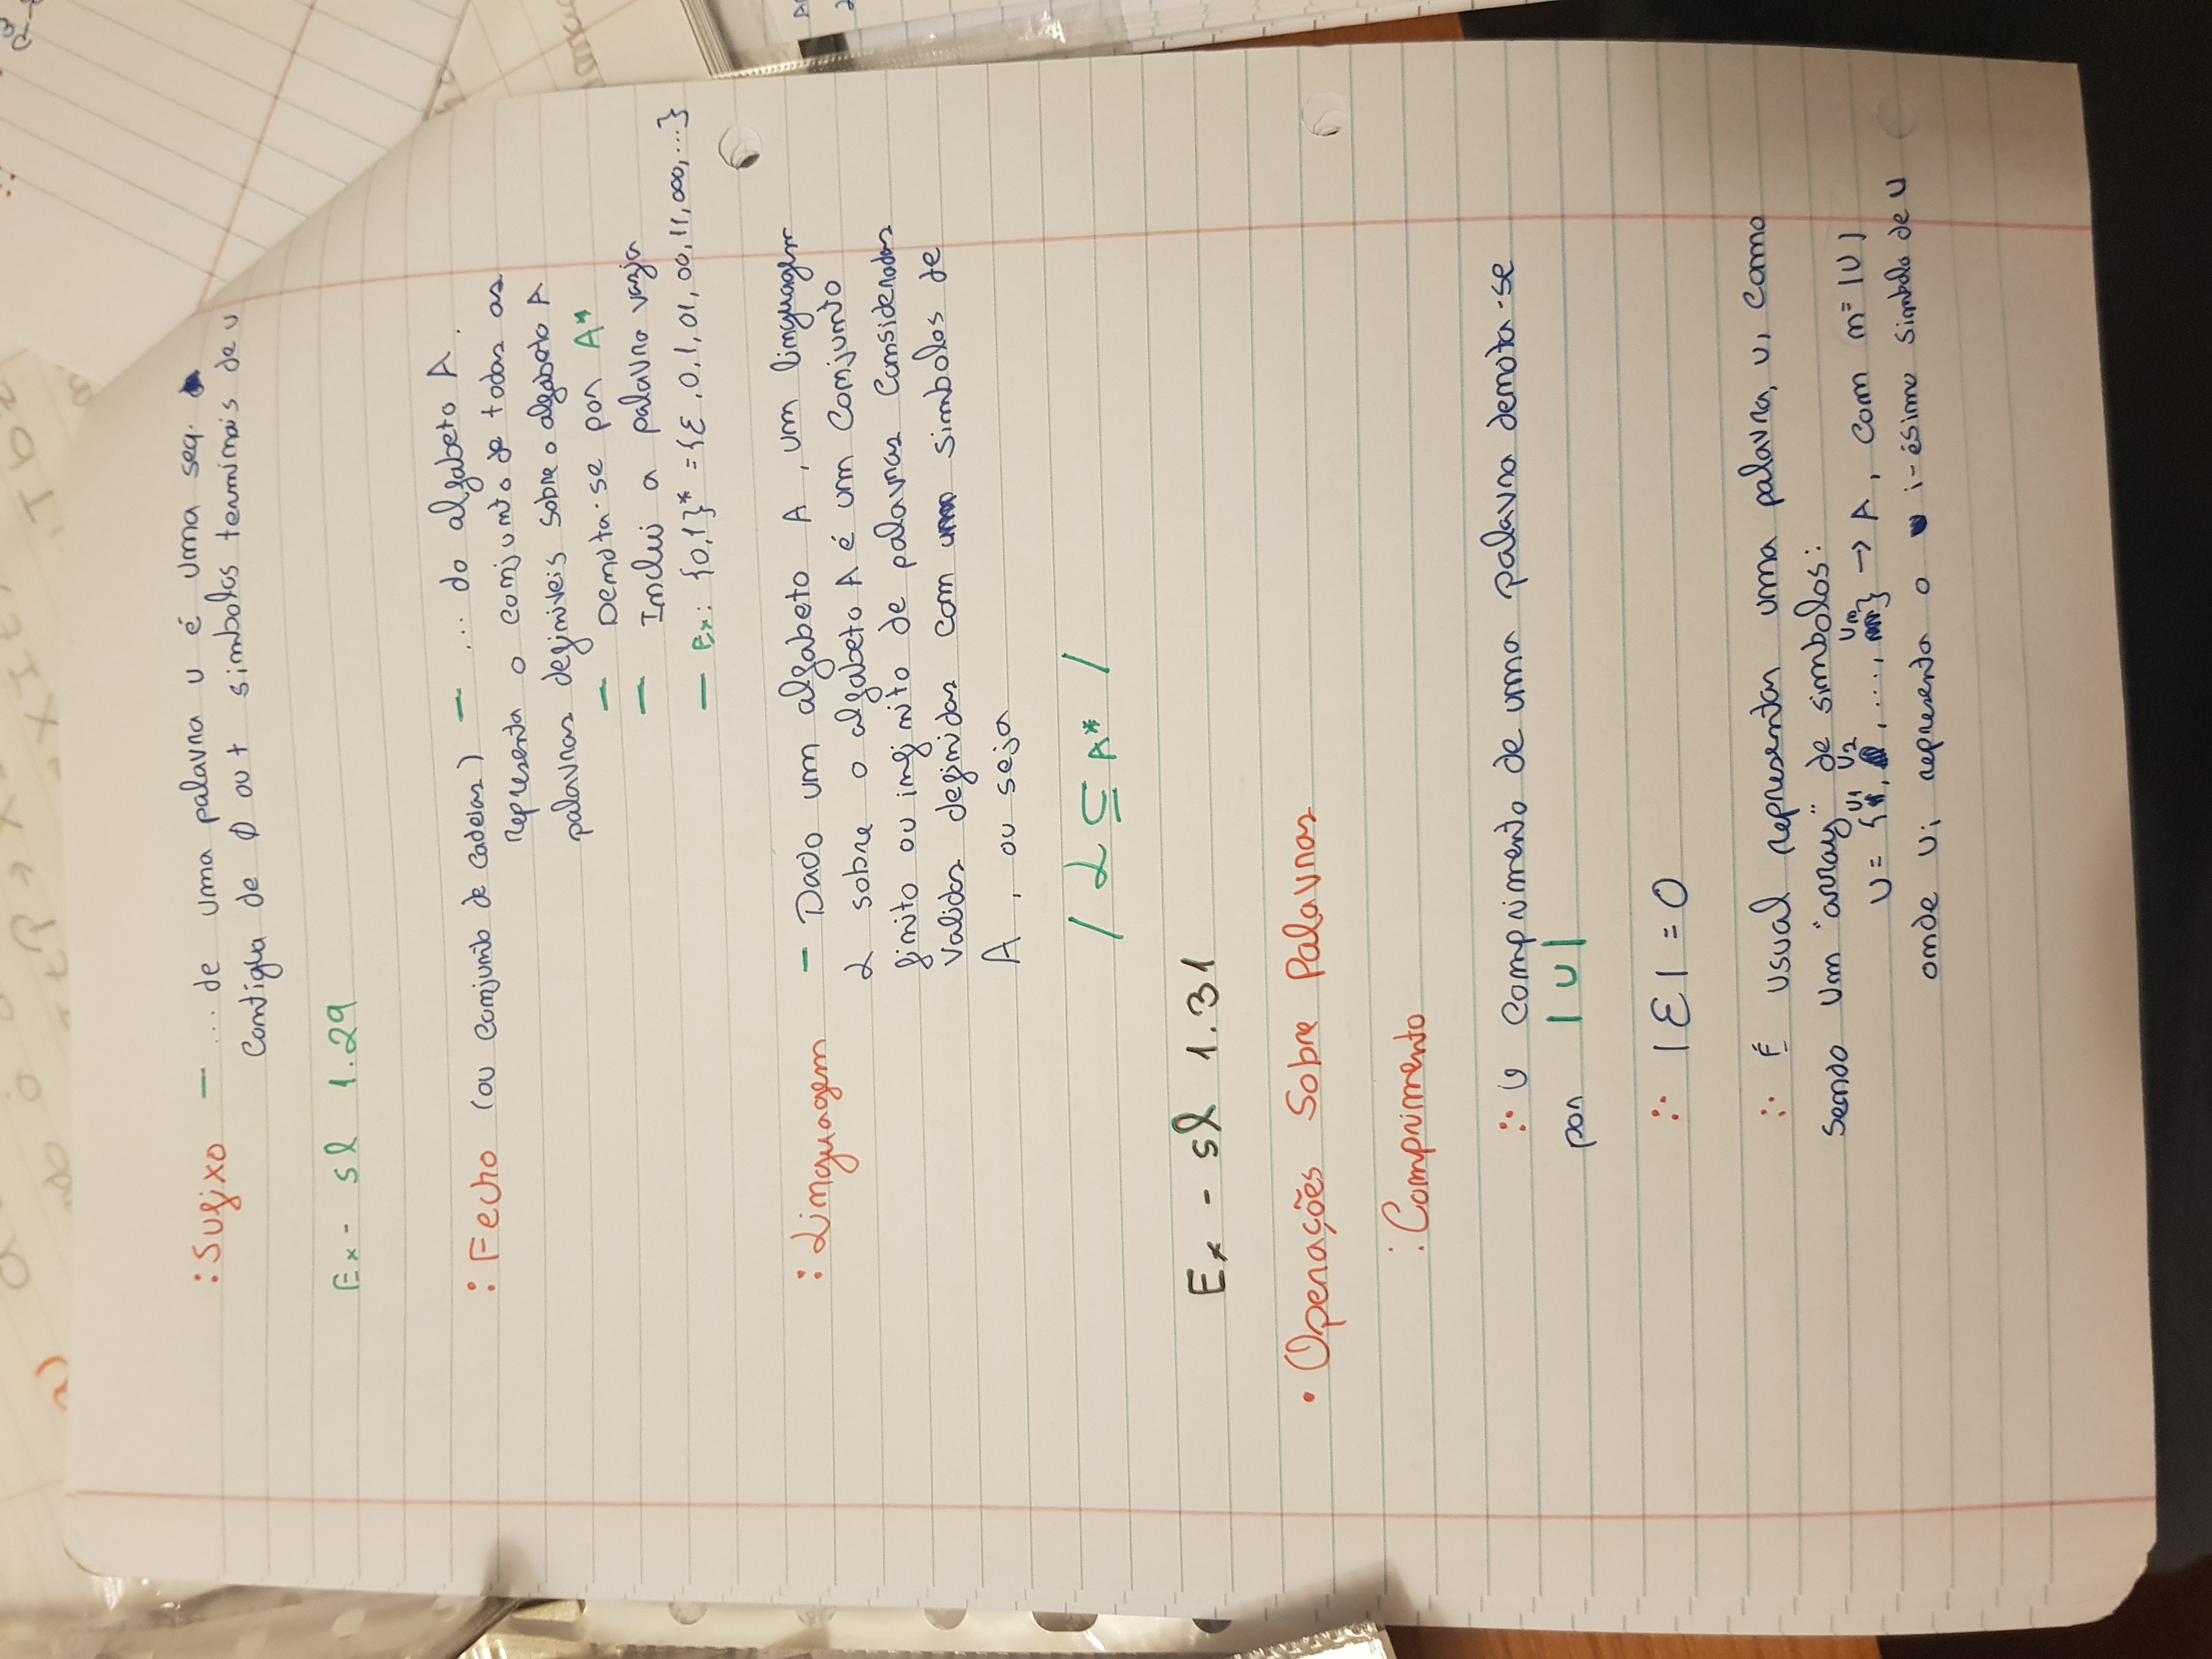 : Sufixo — ... de uma palavra u é uma seq.
contigua de 0 ou + simbolos terminais de u
Ex - sl 1.29
: Fecho (ou conjunto de cadeias) — ... do alfabeto A.
representa o conjunto de todas as
palavras definiveis sobre o alfabeto A
— Denota-se por A*
— Inclui a palavra vazia
— Ex: {0,1}* = {Ɛ, 0, 1, 01, 00, 11, 000, ...}
: Linguagem — Dado um alfabeto A, um linguagem
L sobre o alfabeto A é um conjunto
finito ou infinito de palavras consideradas
validas definidas com simbolos de
A, ou seja
/ L ⊆ A* /
Ex - sl 1.31
• Operações Sobre Palavras
: Comprimento
∴ O comprimento de uma palavra denota-se
por |u|
∴ |Ɛ| = 0
∴ É usual representar uma palavra, u, como
sendo um "array" de simbolos:
u = {u1, u2, ..., un} → A, com n = |u|
onde ui representa o i-ésimo simbolo de u